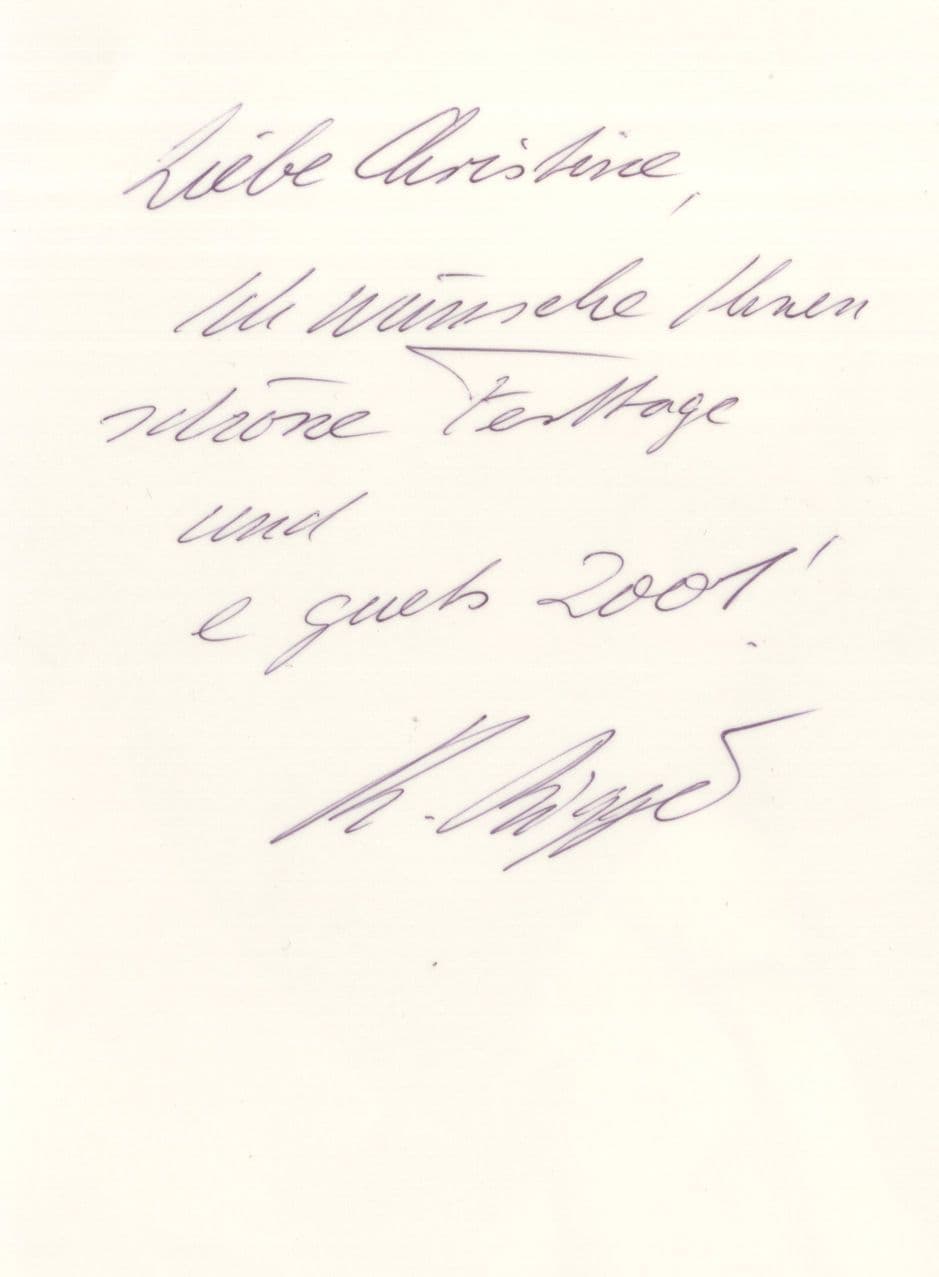 Liebe Christine,
Ich wünsche Ihnen
schöne Festtage
und
e guets 2001!